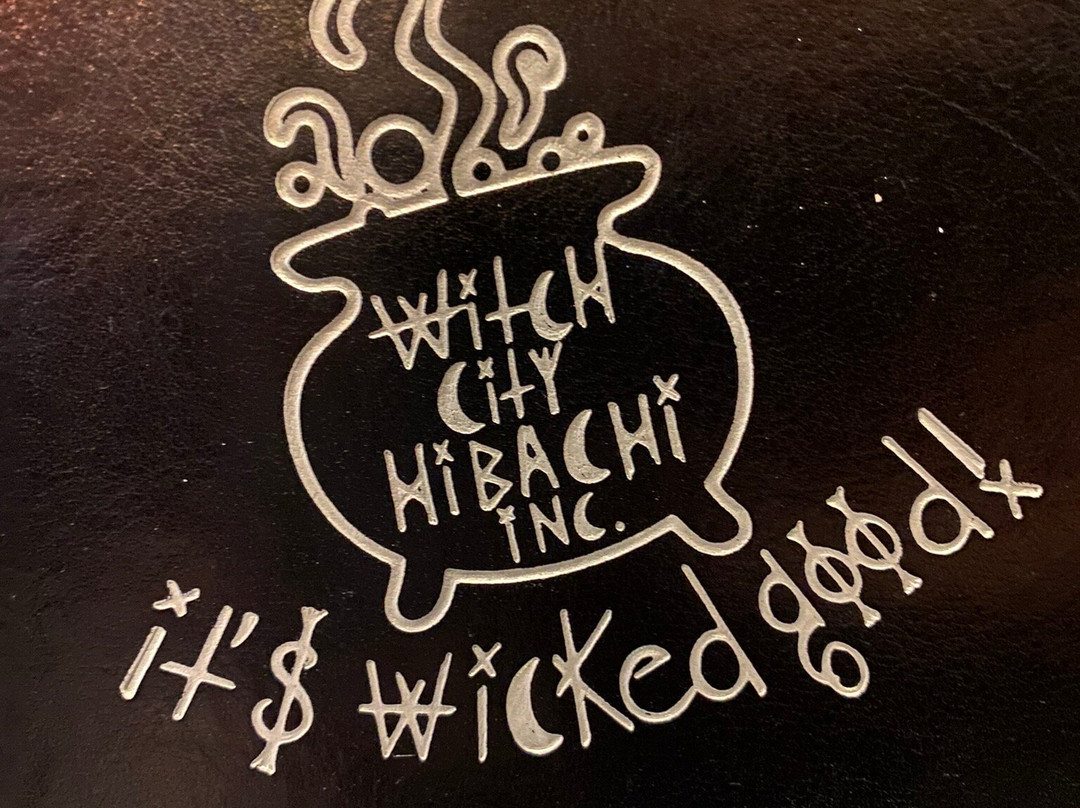 WitCH
CitY
HiBACHi
iNC.
it's wicked good!